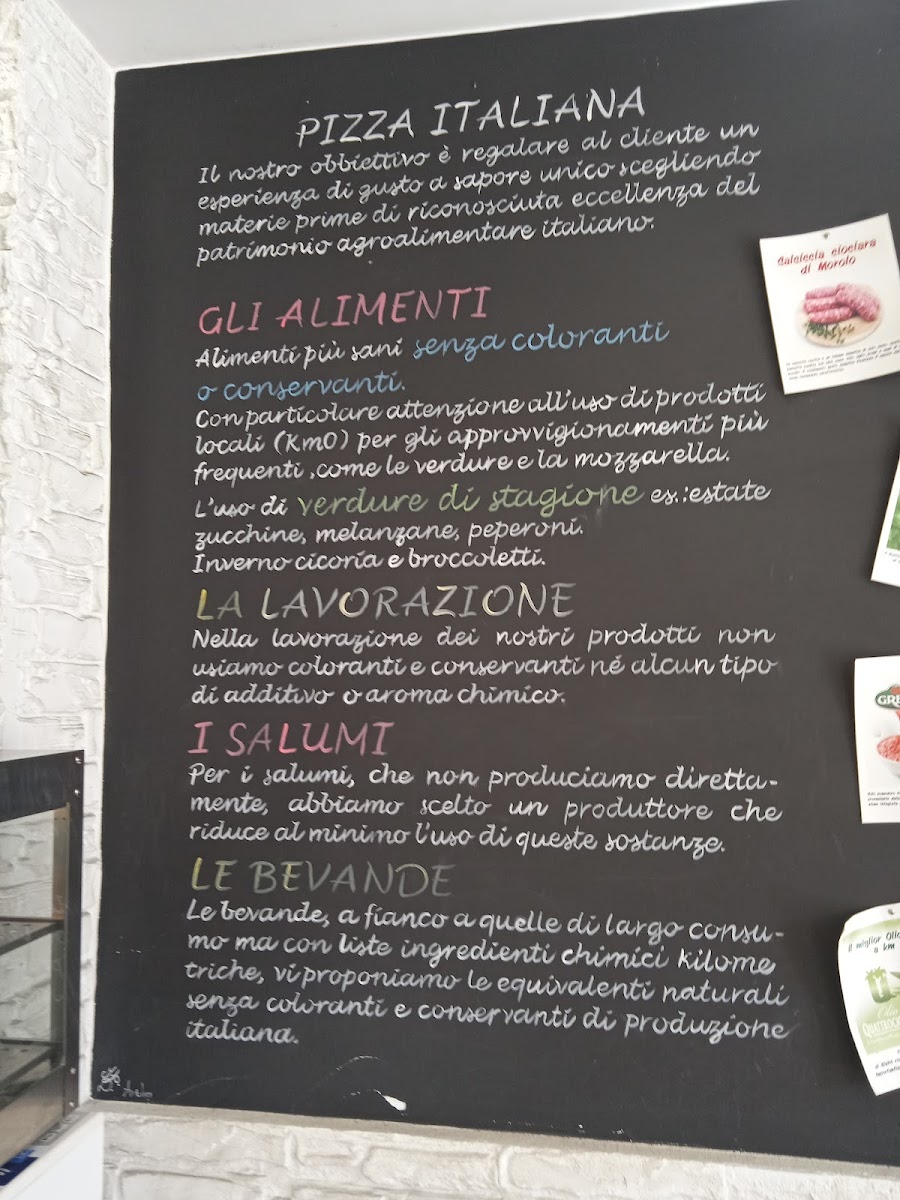 PIZZA ITALIANA
Il nostro obbiettivo è regalare al cliente un
esperienza di gusto a sapore unico scegliendo
materie prime di riconosciuta eccellenza del
patrimonio agroalimentare italiano.
GLI ALIMENTI
Alimenti più sani senza coloranti
o conservanti.
Con particolare attenzione all'uso di prodotti
locali (Km0) per gli approvvigionamenti più
frequenti ,come le verdure e la mozzarella.
L'uso di verdure di stagione es.:estate
zucchine, melanzane, peperoni.
Inverno cicoria e broccoletti.
LA LAVORAZIONE
Nella lavorazione dei nostri prodotti non
usiamo coloranti e conservanti né alcun tipo
di additivo o aroma chimico.
I SALUMI
Per i salumi, che non produciamo diretta-
mente, abbiamo scelto un produttore che
riduce al minimo l'uso di queste sostanze.
LE BEVANDE
Le bevande, a fianco a quelle di largo consu-
mo ma con liste ingredienti chimici Kilome
triche, vi proponiamo le equivalenti naturali
senza coloranti e conservanti di produzione
italiana.
Salsiccia ciociara
di Morolo
Il miglior Olio
a km
Olio